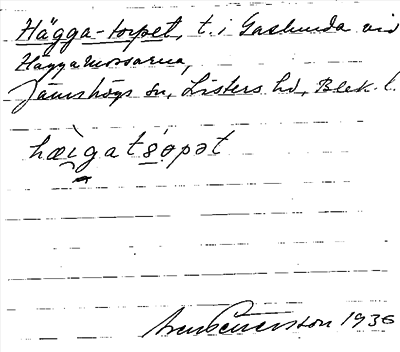 Hägga-torpet, t. i Gaslunda vid
Häggamossarna,
Jämshögs sn, Listers hd, Blek. l.
hæi̯gats̱ɵpət
1936